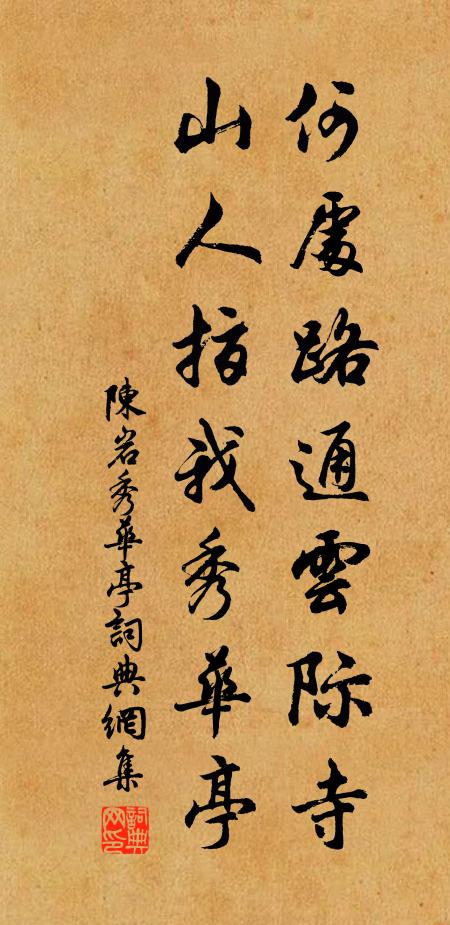 何處路通雲际寺
山人指我秀華亭
陳岩秀華亭詞典網集
詞典网印